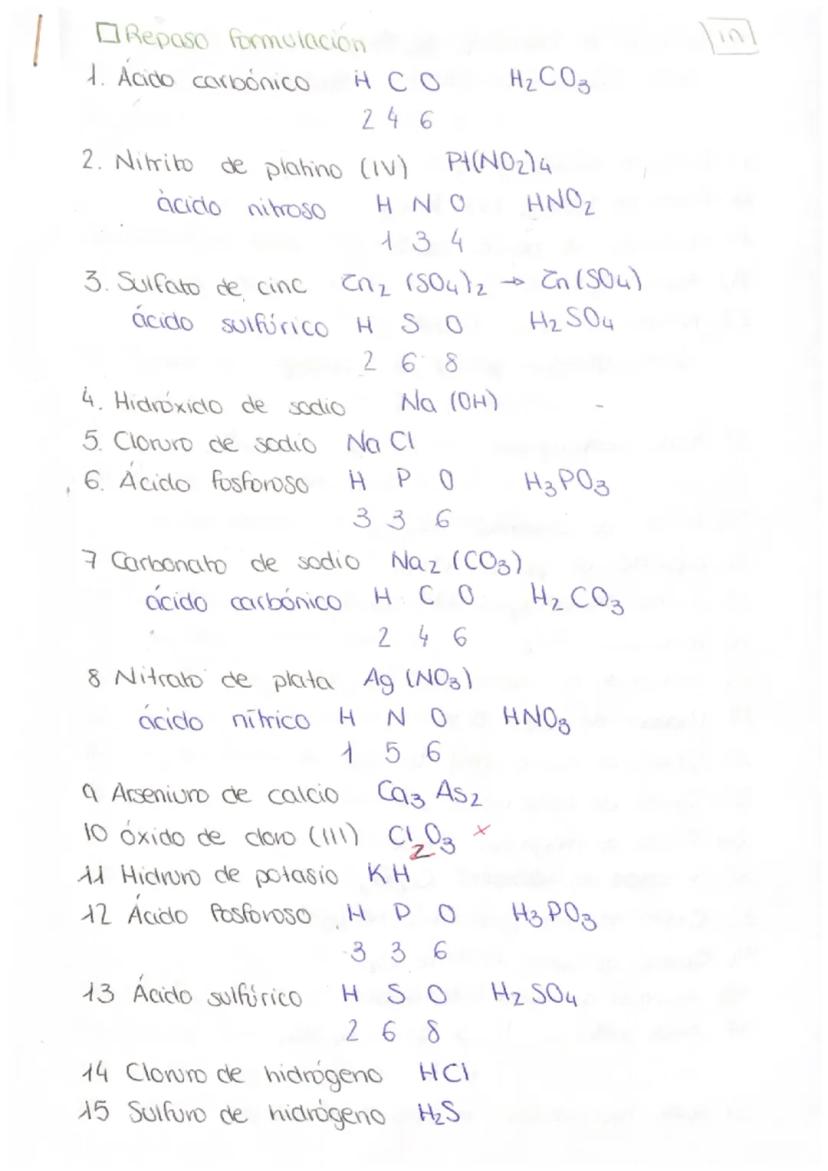 Repaso formulación
in
1. Ácido carbónico H C O H₂CO₃
2 4 6
2. Nitrito de platino (IV) Pt(NO₂)4
ácido nitroso H N O HNO₂
1 3 4
3. Sulfato de cinc Zn₂ (SO₄)₂ → Zn(SO₄)
ácido sulfúrico H S O H₂SO₄
2 6 8
4. Hidróxido de sodio Na (OH)
5. Cloruro de sodio Na Cl
6. Ácido fosforoso H P O H₃PO₃
3 3 6
7 Carbonato de sodio Na₂ (CO₃)
ácido carbónico H C O H₂CO₃
2 4 6
8 Nitrato de plata Ag (NO₃)
ácido nítrico H N O HNO₃
1 5 6
9 Arseniuro de calcio Ca₃ As₂
10 óxido de cloro (III) Cl₂O₃ ×
11 Hidruro de potasio KH
12 Ácido fosforoso H P O H₃PO₃
3 3 6
13 Ácido sulfúrico H S O H₂SO₄
2 6 8
14 Cloruro de hidrógeno HCl
15 Sulfuro de hidrógeno H₂S